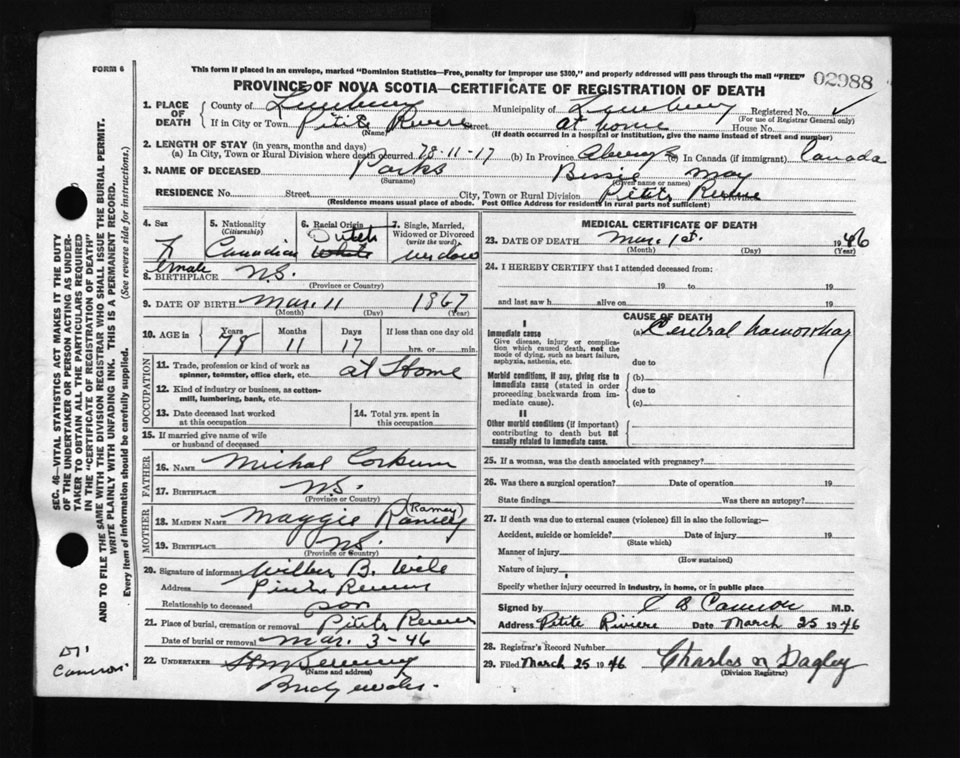 FORM 6
This form if placed in an envelope, marked "Dominion Statistics—Free, penalty for improper use $300," and properly addressed will pass through the mail "FREE"
02988
PROVINCE OF NOVA SCOTIA—CERTIFICATE OF REGISTRATION OF DEATH
1. PLACE OF DEATH County of Lunenburg Municipality of Lunenburg Registered No.
(For use of Registrar General only)
If in City or Town Petite Riviere Street at home House No.
(Name) (If death occurred in a hospital or institution, give the name instead of street and number)
2. LENGTH OF STAY (in years, months and days)
(a) In City, Town or Rural Division where death occurred 78-11-17 (b) In Province Always (c) In Canada (if immigrant) Canada
3. NAME OF DECEASED Parks Bessie May
(Surname) (Given name or names)
RESIDENCE No. Street City, Town or Rural Division Petite Riviere Province
(Residence means usual place of abode. Post Office Address for residents in rural parts not sufficient)
4. Sex Female
5. Nationality (Citizenship) Canadian
6. Racial Origin Dutch White
7. Single, Married, Widowed or Divorced (write the word) widow
8. BIRTHPLACE N.S.
(Province or Country)
9. DATE OF BIRTH Mar. 11 1867
(Month) (Day) (Year)
10. AGE in Years Months Days If less than one day old
78 11 17 hrs. or min.
OCCUPATION
11. Trade, profession or kind of work as spinner, teamster, office clerk, etc. at Home
12. Kind of industry or business, as cotton-mill, lumbering, bank, etc.
13. Date deceased last worked at this occupation
14. Total yrs. spent in this occupation
15. If married give name of wife or husband of deceased
FATHER
16. NAME Michal Corkum
17. BIRTHPLACE N.S.
(Province or Country)
MOTHER
(Ramey)
18. MAIDEN NAME Maggie Ramey
19. BIRTHPLACE N.S.
(Province or Country)
20. Signature of informant Wilber B. Wile
Address Petite Riviere
Relationship to deceased son
21. Place of burial, cremation or removal Petite Riviere
Date of burial or removal Mar. 3-46
22. UNDERTAKER
(Name and address)
Bridgewater.
MEDICAL CERTIFICATE OF DEATH
23. DATE OF DEATH Mar. 1st. 1946
(Month) (Day) (Year)
24. I HEREBY CERTIFY that I attended deceased from:
19 to 19
and last saw h alive on 19
CAUSE OF DEATH
I
Immediate cause (a) Cerebral hamorrhag
Give disease, injury or complication which caused death, not the mode of dying, such as heart failure, asphyxia, asthenia, etc.
due to
Morbid conditions, if any, giving rise to immediate cause (stated in order proceeding backwards from immediate cause).
(b)
due to
(c)
II
Other morbid conditions (if important) contributing to death but not causally related to immediate cause.
25. If a woman, was the death associated with pregnancy?
26. Was there a surgical operation? Date of operation 19
State findings Was there an autopsy?
27. If death was due to external causes (violence) fill in also the following:—
Accident, suicide or homicide? Date of injury 19
(State which)
Manner of injury
(How sustained)
Nature of injury
Specify whether injury occurred in industry, in home, or in public place
Signed by C B Cameron M.D.
Address Petite Riviere Date March 25 1946
28. Registrar's Record Number
29. Filed March 25 1946 Charles N Dagley
(Division Registrar)
SEC. 46—VITAL STATISTICS ACT MAKES IT THE DUTY
OF THE UNDERTAKER OR PERSON ACTING AS UNDER-
TAKER TO OBTAIN ALL THE PARTICULARS REQUIRED
IN THE "CERTIFICATE OF REGISTRATION OF DEATH"
AND TO FILE THE SAME WITH THE DIVISION REGISTRAR WHO SHALL ISSUE THE BURIAL PERMIT.
WRITE PLAINLY WITH UNFADING INK. THIS IS A PERMANENT RECORD.
Every item of information should be carefully supplied. (See reverse side for instructions.)
Dr.
Cameron